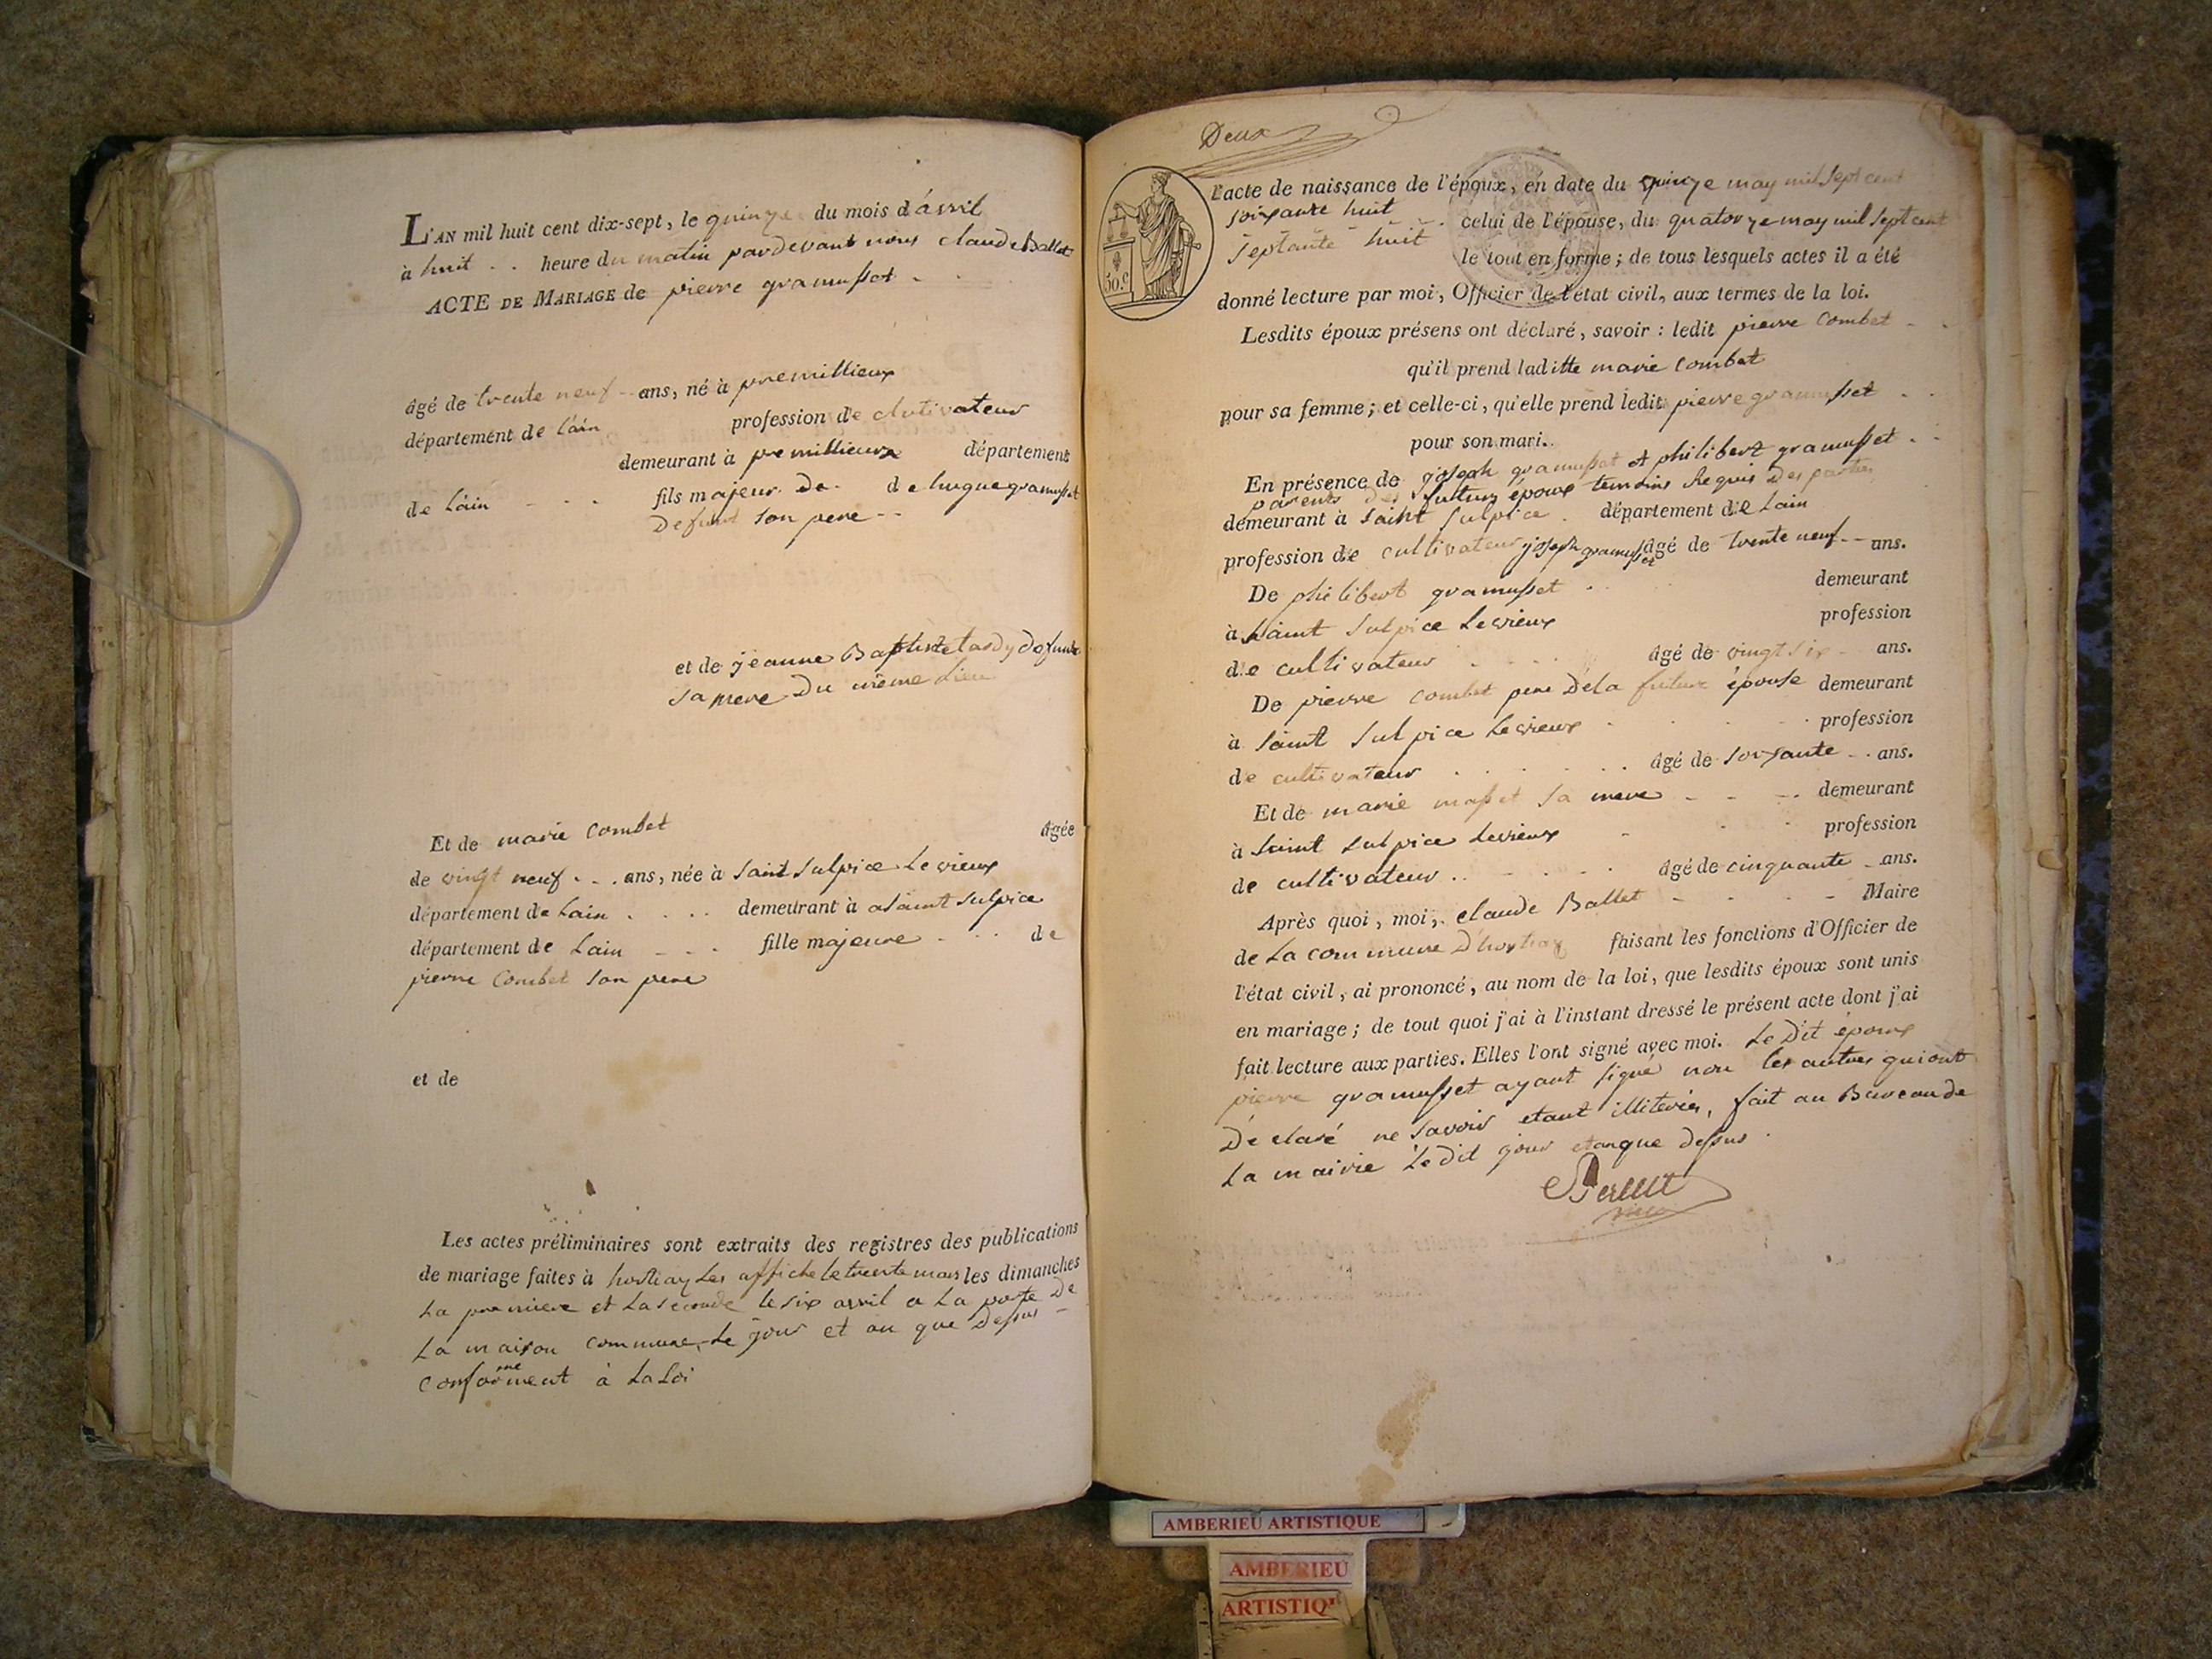 L'AN mil huit cent dix-sept, le quinze du mois d'avril
à huit .. heure du matin pardevant nous claude Ballet
ACTE DE MARIAGE de pierre gramusset
âgé de trente neuf ans, né à premillieux
département de l'áin profession de clutivateur
demeurant à premillieux département
de Láin fils majeur de de hugue gramusset
Defunt son pere
et de jeanne Baptiste tardy defunte
sa mere Du même Lieu
Et de marie Combet âgée
de vingt neuf ans, née à Saint Sulpice Le vieux
département de Lain .... demeurant à a Saint Sulpice
département de Lain fille majeure de
pierre Combet son pere
et de
Les actes préliminaires sont extraits des registres des publications
de mariage faites à hostiay Les affiche le trente mars les dimanches
La premiere et La seconde le six avril a La porte De
La maison commune, Le jour et an que Dessus
conformement à La Loi
Deux
L'acte de naissance de l'époux, en date du quinze may mil sept cent
soixante huit celui de l'épouse, du quatorze may mil sept cent
septante huit le tout en forme; de tous lesquels actes il a été
50.c
donné lecture par moi, Officier de l'état civil, aux termes de la loi.
Lesdits époux présens ont déclaré, savoir: ledit pierre Combet
qu'il prend laditte marie Combet
pour sa femme; et celle-ci, qu'elle prend ledit pierre gramusset
pour son mari.
En présence de joseph gramusset et philibert gramusset
parents des futurs époux temoins Requis Des parties
demeurant à Saint Sulpice département de Lain
profession de cultivateur joseph gramusset âgé de trente neuf ans.
De philibert gramusset demeurant
à Saint Sulpice Le vieux profession
de cultivateur âgé de vingt six ans.
De pierre Combet pere De la future épouse demeurant
à Saint Sulpice Le vieux profession
de cultivateur âgé de soixante ans.
Et de marie masset sa mere demeurant
à Saint Sulpice Le vieux profession
de cultivateur âgé de cinquante ans.
Après quoi, moi, claude Ballet Maire
de La commune D'hostiay faisant les fonctions d'Officier de
l'état civil, ai prononcé, au nom de la loi, que lesdits époux sont unis
en mariage; de tout quoi j'ai à l'instant dressé le présent acte dont j'ai
fait lecture aux parties. Elles l'ont signé avec moi. Le Dit époux
pierre gramusset ayant signé non les autres qui ont
Déclaré ne savoir etant illiterés, fait au Bureau de
La mairie Le Dit jour et an que dessus.
AMBERIEU ARTISTIQUE
AMBERIEU
ARTISTIQ